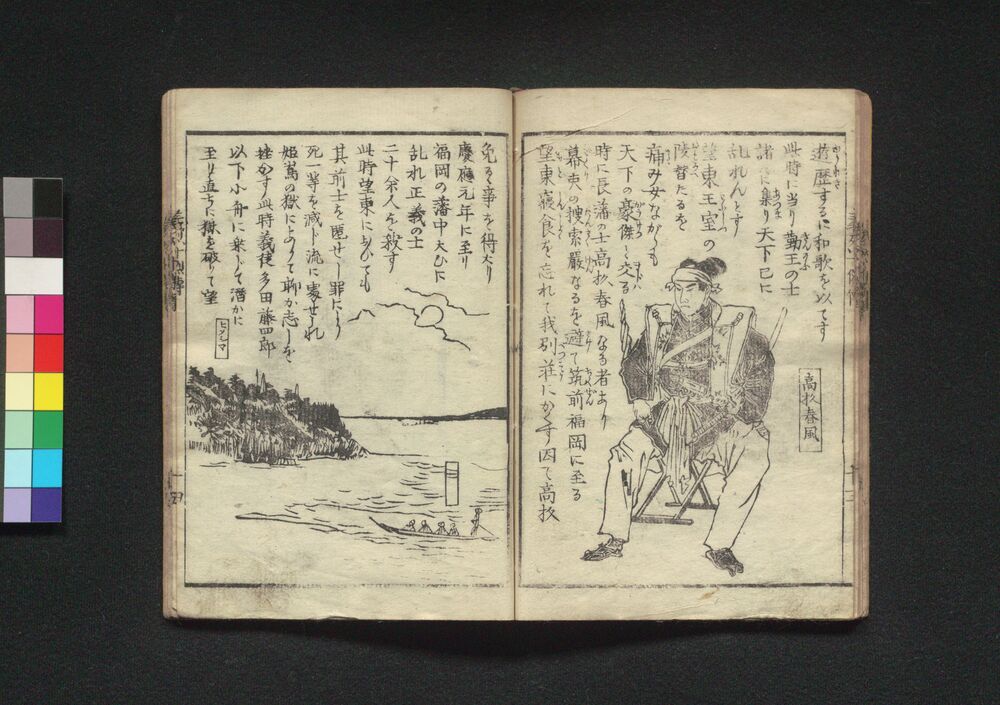 遊歴するに和歌を以てす
此時に当り勤王の士
諸方に集り天下已に
乱れんとす
望東王室の
陵替たるを
痛み女ながらも
天下の豪傑と交る
時に長藩の士高杦春風なる者あり
幕吏の捜索厳なるを避て筑前福岡に至る
望東寝食を忘れて我別荘にかくす因て高杦
高杦春風
免るゝ事を得たり
慶應元年に至り
福岡の藩中大ひに
乱れ正義の士
二十余人を殺す
此時望東に与ひても
其前士を匿せし罪により
死一等を減ト流に処せられ
姫嶌の獄に
此時義徒多田藤四郎
以下小舟に乗じて潜かに
至り直ちに獄を破りて望
ヒメシマ